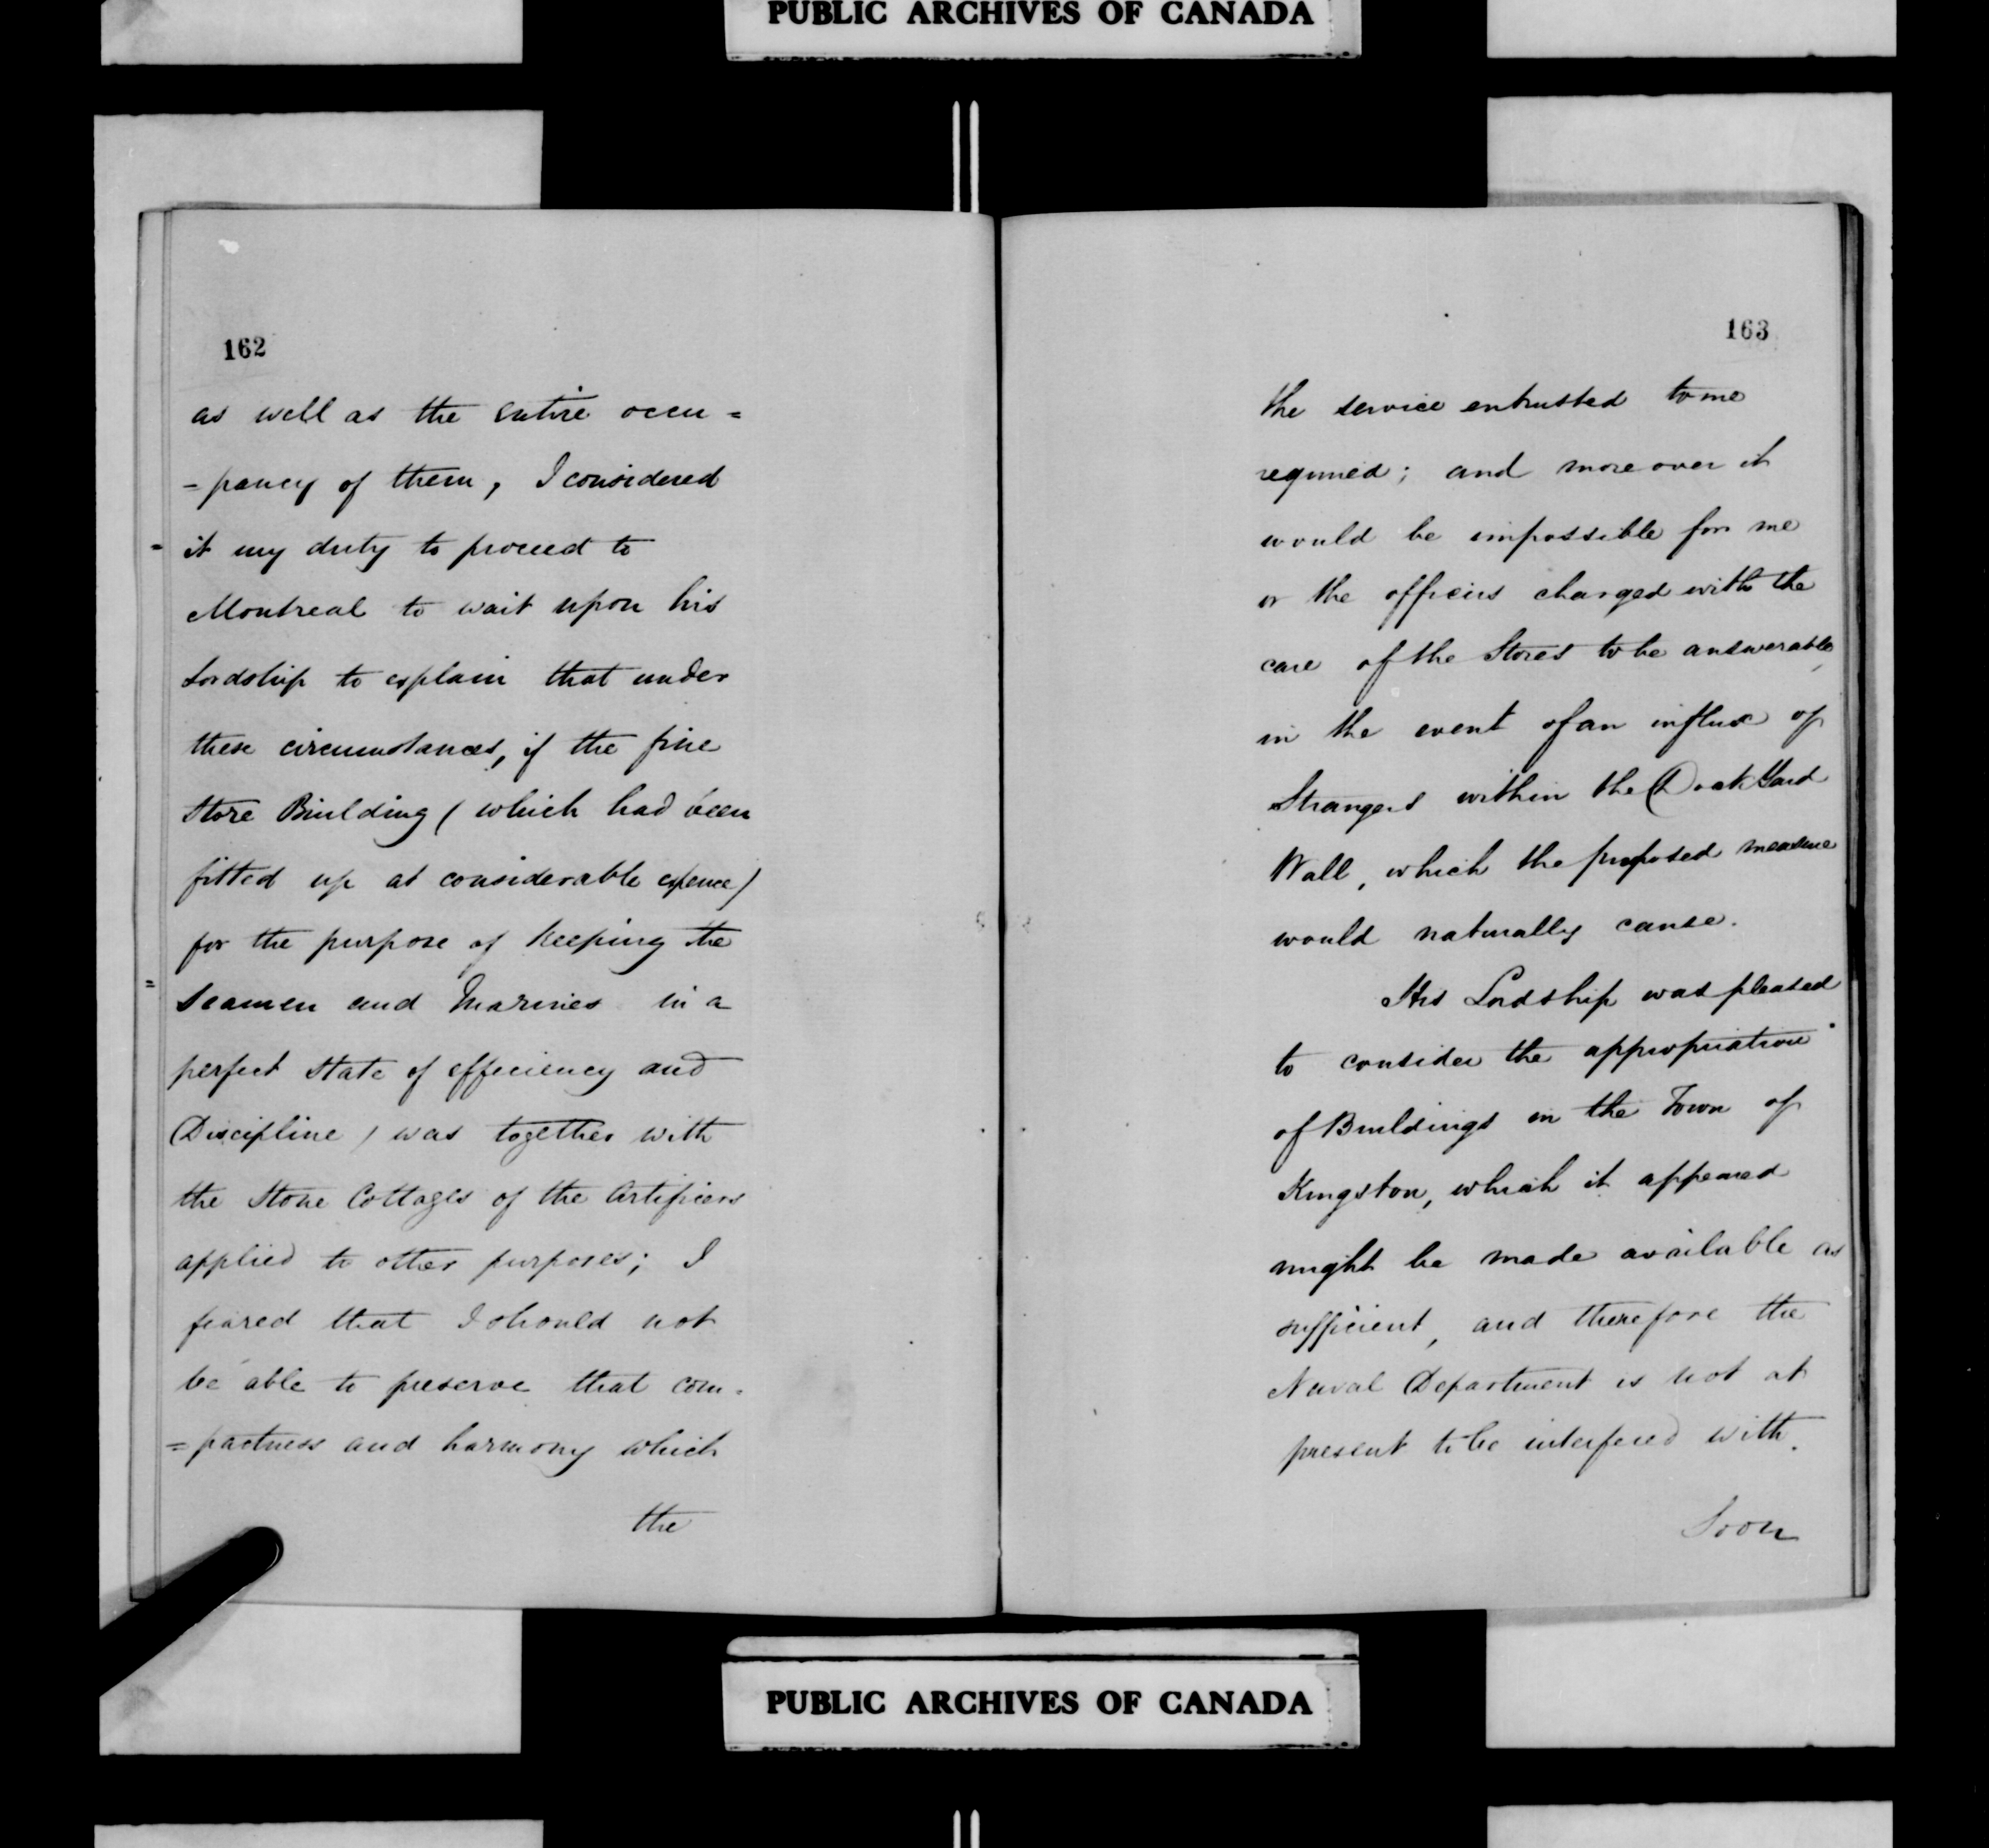 PUBLIC ARCHIVES OF CANADA
162
as well as the entire occu =
= pancy of them, I considered
= it my duty to proceed to
Montreal to wait upon his
Lordship to explain that under
these circumstances, if the fine
Store Building ( which had been
fitted up at considerable expence )
for the purpose of keeping the
= Seamen and Marines in a
perfect State of efficiency and
Discipline ) was together with
the Stone Cottages of the Artificers
applied to other purposes; I
feared that I should not
be able to preserve that com =
= pactness and harmony which
the
163
the service entrusted to me
required; and more over it
would be impossible for me
or the officers charged with the
care of the Stores to be answerable,
in the event of an influx of
Strangers within the Dock Yard
Wall, which the proposed measure
would naturally cause.
His Lordship was pleased
to consider the appropriation
of Buildings in the Town of
Kingston, which it appeared
might be made available as
sufficient, and therefore the
Naval Department is not at
present to be interfered with.
Soon
PUBLIC ARCHIVES OF CANADA